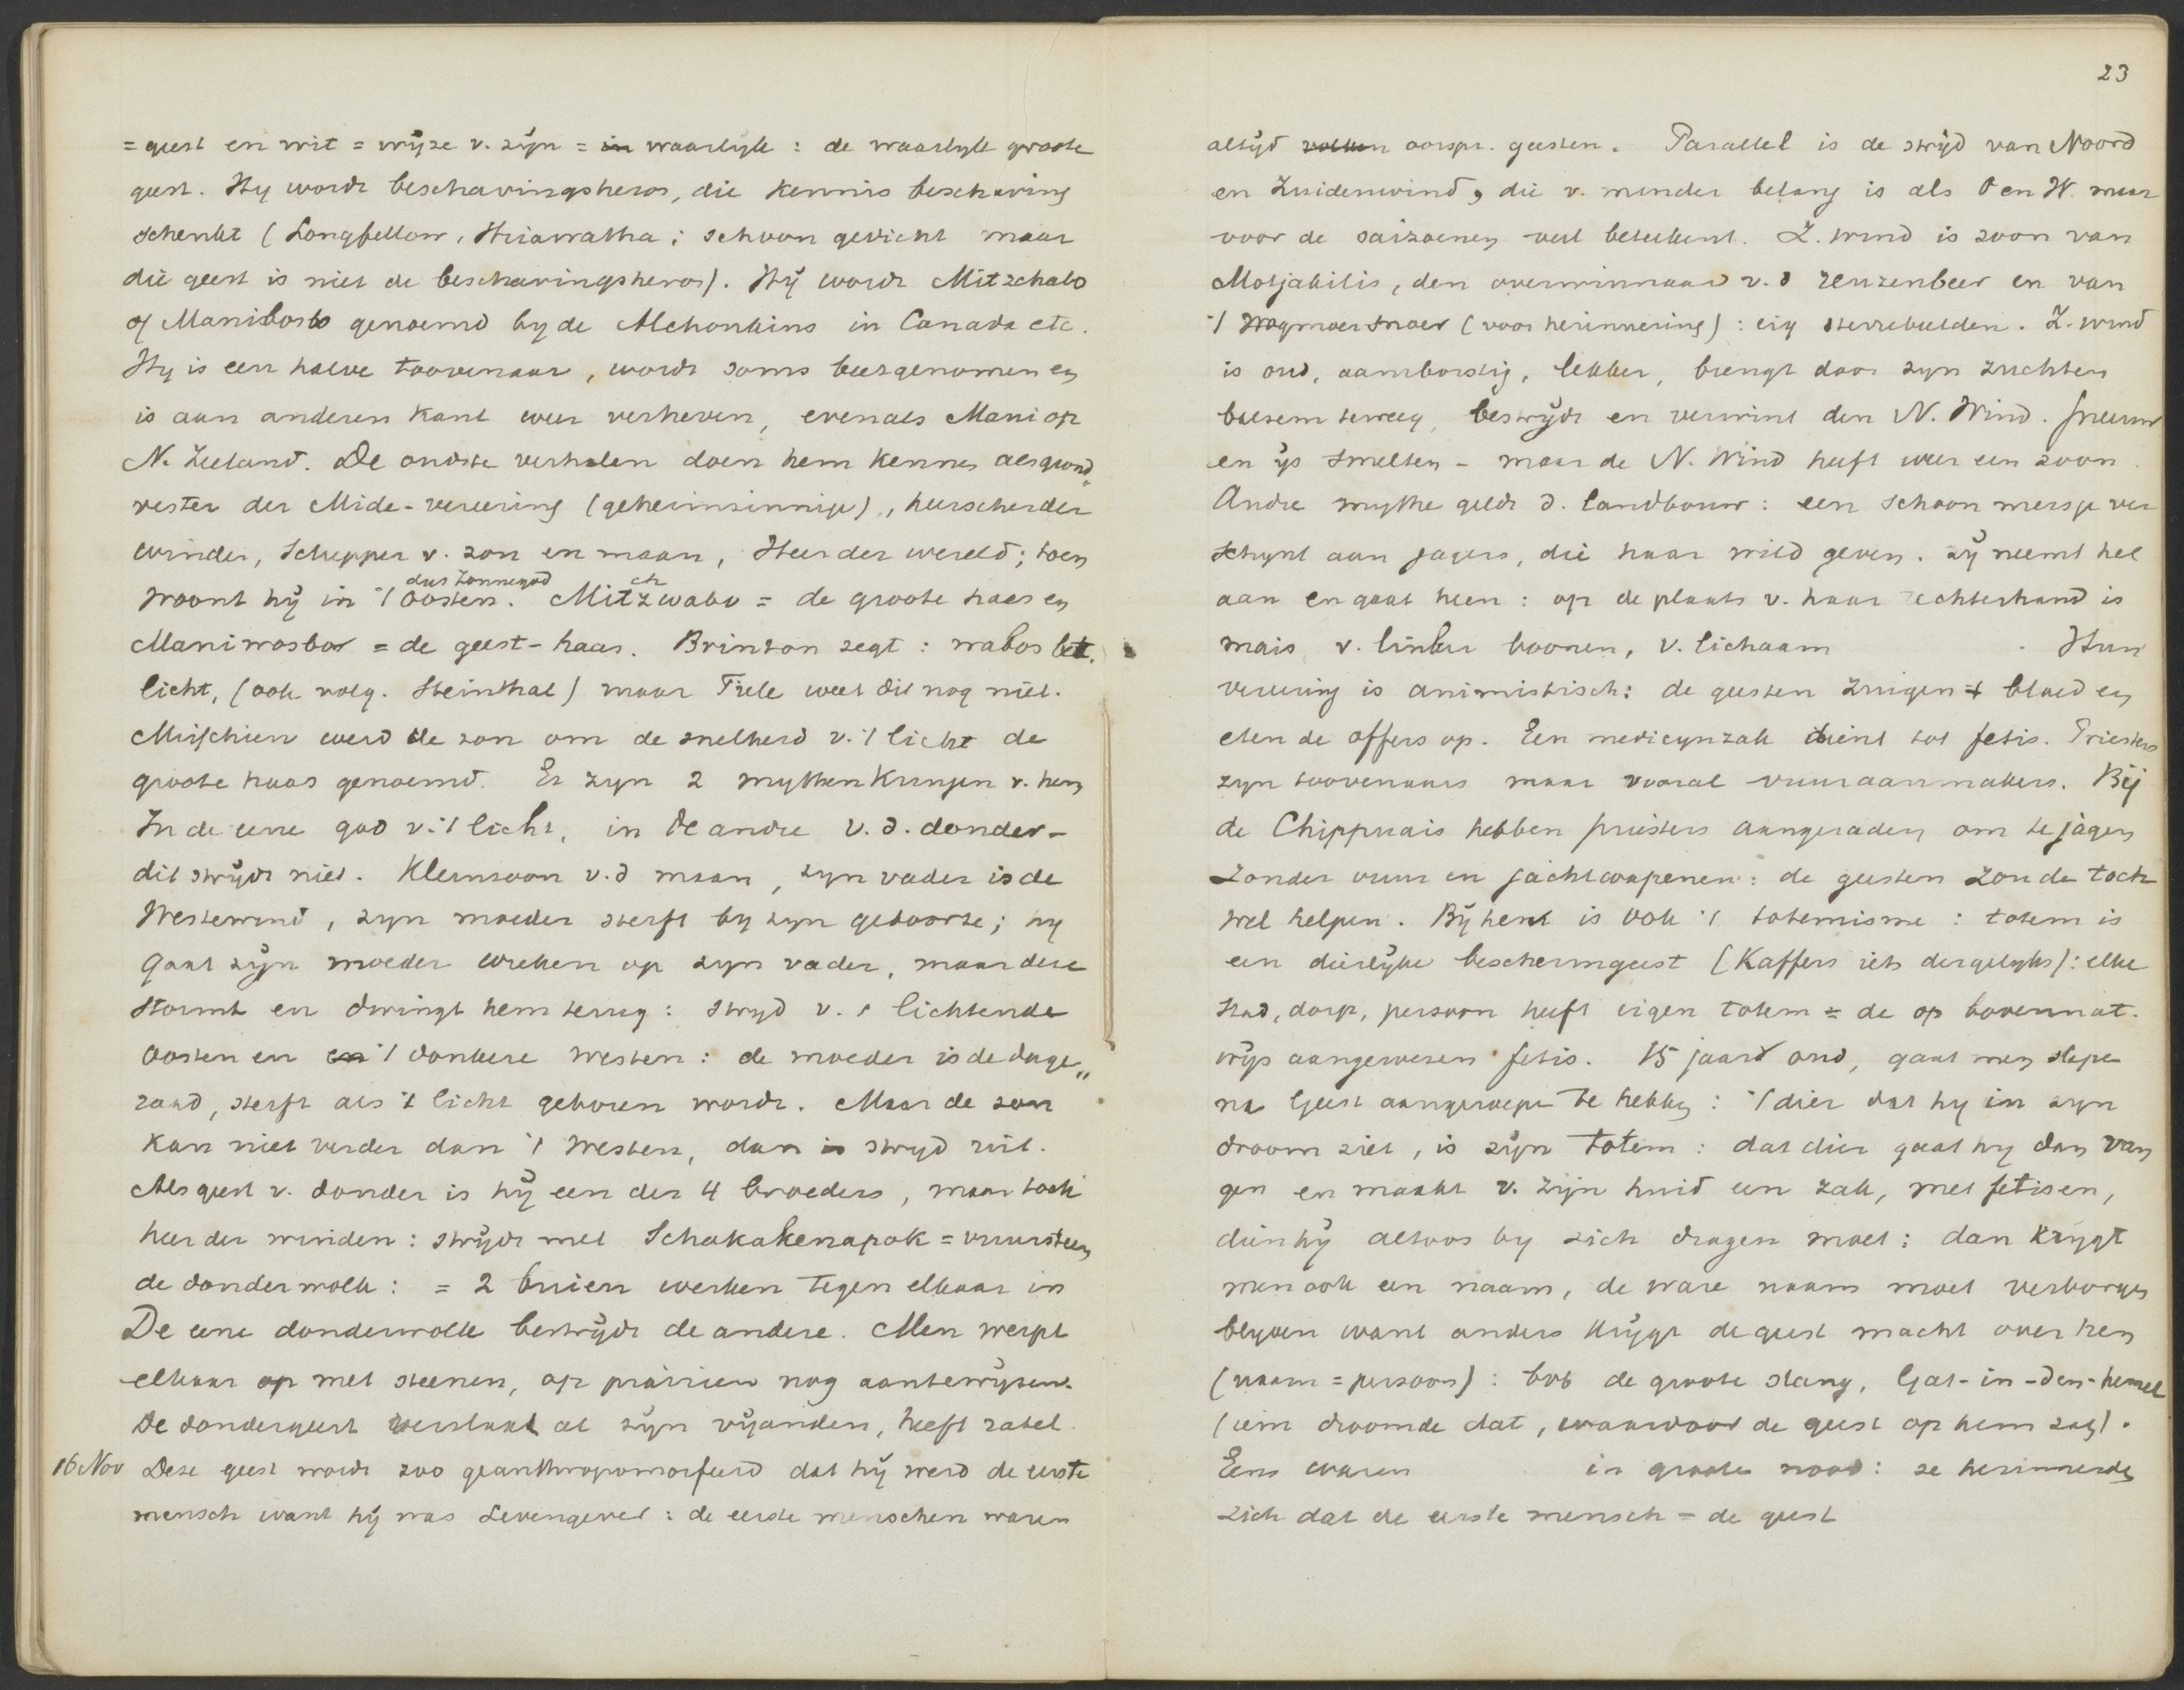 = geest en wit = wijze v. zijn = in waarlijk : de waarlijk groote
geest. Hy wordt beschavingsheros, die kennis beschaving
schenkt (Longfellow, Hiawatha ; schoon gedicht maar
die geest is niet de beschavingsheros). Hij wordt Mitzchabo
of Manibosbo genoemd by de Alchonkins in Canada etc.
Hy is een halve toovenaar, wordt soms beetgenomen en
is aan anderen kant weer verheven, evenals Maui op
N. Zeeland. De oudste verhalen doen hem kennen als grond„
vester der Mide-vereering (geheimzinnige), heerscher der
winden, Schepper v. zon en maan, Heer der wereld ; toen
dus Zonnegod ch
woont hij in 't Oosten. Mitzwabo = de groote haas en
Maniwasbor = de geest-haas. Brinton zegt : wabos bet.
licht, (ook volg. Steinthal) maar Tiele weet dit nog niet.
Misschien werd de zon om de snelheid v. 't licht de
groote haas genoemd. Er zyn 2 mythenkringen v. hem
In de eene god v. 't licht, in de andre v. d. donder -
dit strijdt niet. Kleinzoon v. d maan, zyn vader is de
Westewind, zyn moeder sterft by zyn geboorte ; hy
gaat zijn moeder wreken op zyn vader, maar deze
stormt en dwingt hem terug : stryd v. 't lichtende
Oosten en en 't donkere westen : de moeder is de dage„
raad, sterft als 't licht geboren wordt. Maar de zon
kan niet verder dan 't Westen, dan is stryd uit.
Als geest v. donder is hij een der 4 broeders, maar toch
heer der winden : strijdt met Schakakenapok = vuursteen
de donderwolk : = 2 buien werken tegen elkaar in
De eene donderwolk bestrijdt de andere. Men werpt
elkaar op met steenen, op prairien nog aantewijzen.
De dondergeest verslaat al zijn vijanden, heeft ratel.
16 Nov Deze geest wordt zoo geanthropomorfeerd dat hij werd de eerste
mensch want hij was Levengever : de eerste menschen waren
23
altijd oorspr. geesten. Parallel is de strijd van Noord
en Zuidenwind, die v. minder belang is als O en W. maar
voor de saizoenen veel beteekent. Z. wind is zoon van
Motjakilis, den overwinnaar v. d reuzenbeer en van
't snoer (voor herinnering) : eig sterrebeelden. Z. wind
is oud, aamborstig, lekker, brengt door zyn zuchten
balsem teweeg, bestrijdt en verwint den N. Wind. sneeuw
en ijs smelten - maar de N. Wind heeft weer een zoon.
Andre mythe geldt d. landbouw : een schoon meisje ver
schynt aan jagers, die haar wild geven. zij neemt het
aan en gaat heen : op de plaats v. haar rechterhand is
mais v. linker boonen, v. lichaam . Hun
vereering is animistisch : de geesten zuigen 't bloed en
eten de offers op. Een medicynzak dient tot fetis. Priesters
zyn toovenaars maar vooral vuuraanmakers. Bij
de Chippuais hebben priesters aangeraden om te jagen
zonder vuur en jachtwapenen : de geesten zouden toch
wel helpen. Bij hen is ook 't totemisme : totem is
een dierlijke beschermgeest (Kaffers iets dergelyks) : elke
stad, dorp, persoon heeft eigen totem = de op bovennat.
wijs aangewezen fetis. 15 jaar oud, gaat men slapen
na Geest aangeroepen te hebben : 't dier dat hy in zyn
droom ziet, is zijn totem : dat dier gaat hy dan van
gen en maakt v. zijn huid een zak, met fetisen,
dien hij altoos by zich dragen moet : dan krygt
men ook een naam, de ware naam moet verborgen
blyven want anders krijgt de geest macht over hem
(naam = persoon) : bvb de groote slang, Gat-in-den-hemel
(iem droomde dat, waardoor de geest op hem zag).
Eens waren in groote nood : ze herinnerden
zich dat de eerste mensch = de geest